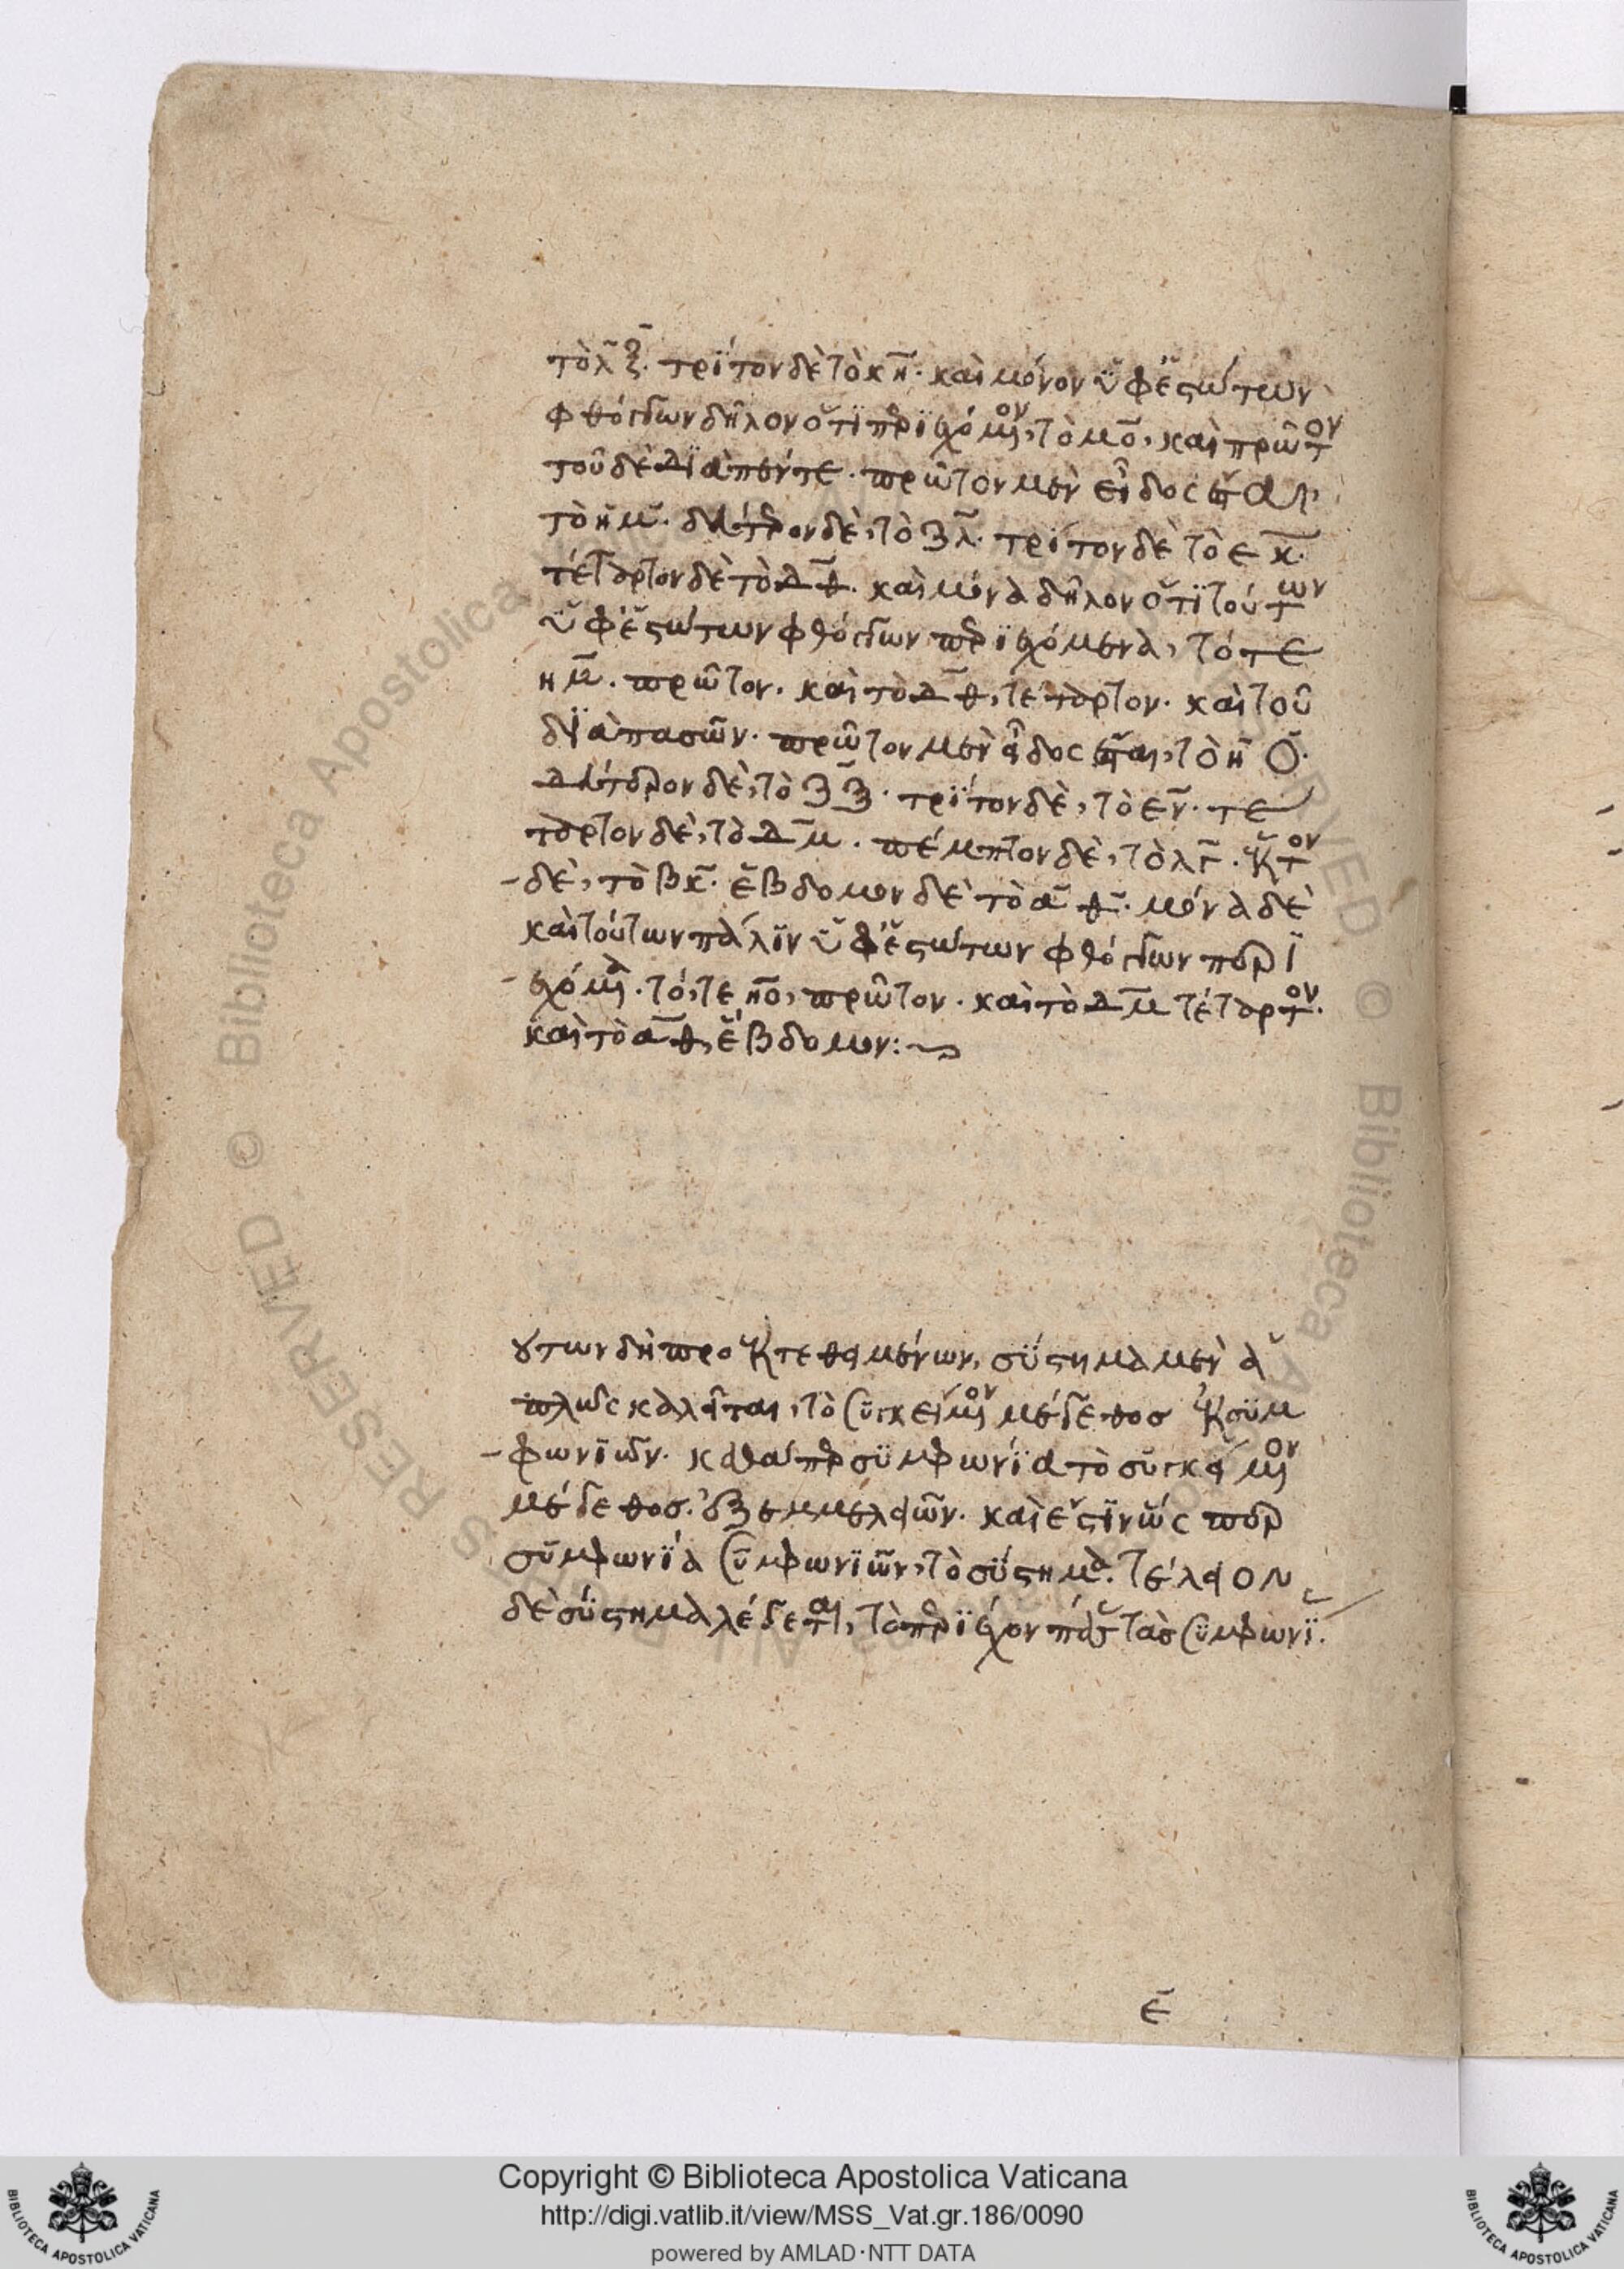 τὸ λ̅ξ̅. τρίτον δὲ τὸ κ̅η̅. καὶ μόνον ὑφ' ἑστώτων
φθόγγων δῆλον ὅτι περιεχόμενον, τὸ μ̅ο̅, καὶ πρῶτον
τοῦ δὲ διὰ πέντε. πρῶτον μὲν εἶδός ἐστι
τὸ η̅μ̅. δεύτερον δὲ, τὸ ζ̅λ̅. τρίτον δὲ τὸ ε̅κ̅.
τέταρτον δὲ τὸ δ̅θ̅. καὶ μόνα δῆλον ὅτι τούτων
ὑφ' ἑστώτων φθόγγων περιεχόμενα, τό τε
η̅μ̅. πρῶτον. καὶ τὸ δ̅θ̅, τέταρτον. καὶ τοῦ
διὰ πασῶν. πρῶτον μὲν εἶδός ἐσται, τὸ η̅ο̅.
δεύτερον δὲ, τὸ ζ̅ξ̅. τρίτον δὲ, τὸ ε̅ν̅. τέ
ταρτον δὲ, τὸ δ̅μ̅. πέμπτον δὲ, τὸ λ̅γ̅. ἕκτον
δὲ, τὸ β̅κ̅. ἕβδομον δὲ τὸ α̅θ̅. μόνα δὲ
καὶ τούτων πάλιν ὑφ' ἑστώτων φθόγγων περι
εχόμενα. τό, τε η̅ο̅, πρῶτον. καὶ τὸ δ̅μ̅ τέταρτον.
καὶ τὸ α̅θ̅, ἕβδομον:
ούτων δὴ προεκτεθειμένων, σύστημα μὲν ἁ
πλῶς καλεῖται, τὸ συγκείμενον μέγεθος ἐκ συμ
φωνιῶν. καθάπερ συμφωνία τὸ συγκείμενον
μέγεθος. ἐξ ἐμμελειῶν. καὶ ἔστιν ὥσπερ
συμφωνία συμφωνιῶν, τὸ σύστημα. τέλειον
δὲ σύστημα λέγεται, τὸ περιέχον πάσας τὰς συμφωνί.
ε̅
Copyright © Biblioteca Apostolica Vaticana
http://digi.vatlib.it/view/MSS_Vat.gr.186/0090
powered by AMLAD·NTT DATA